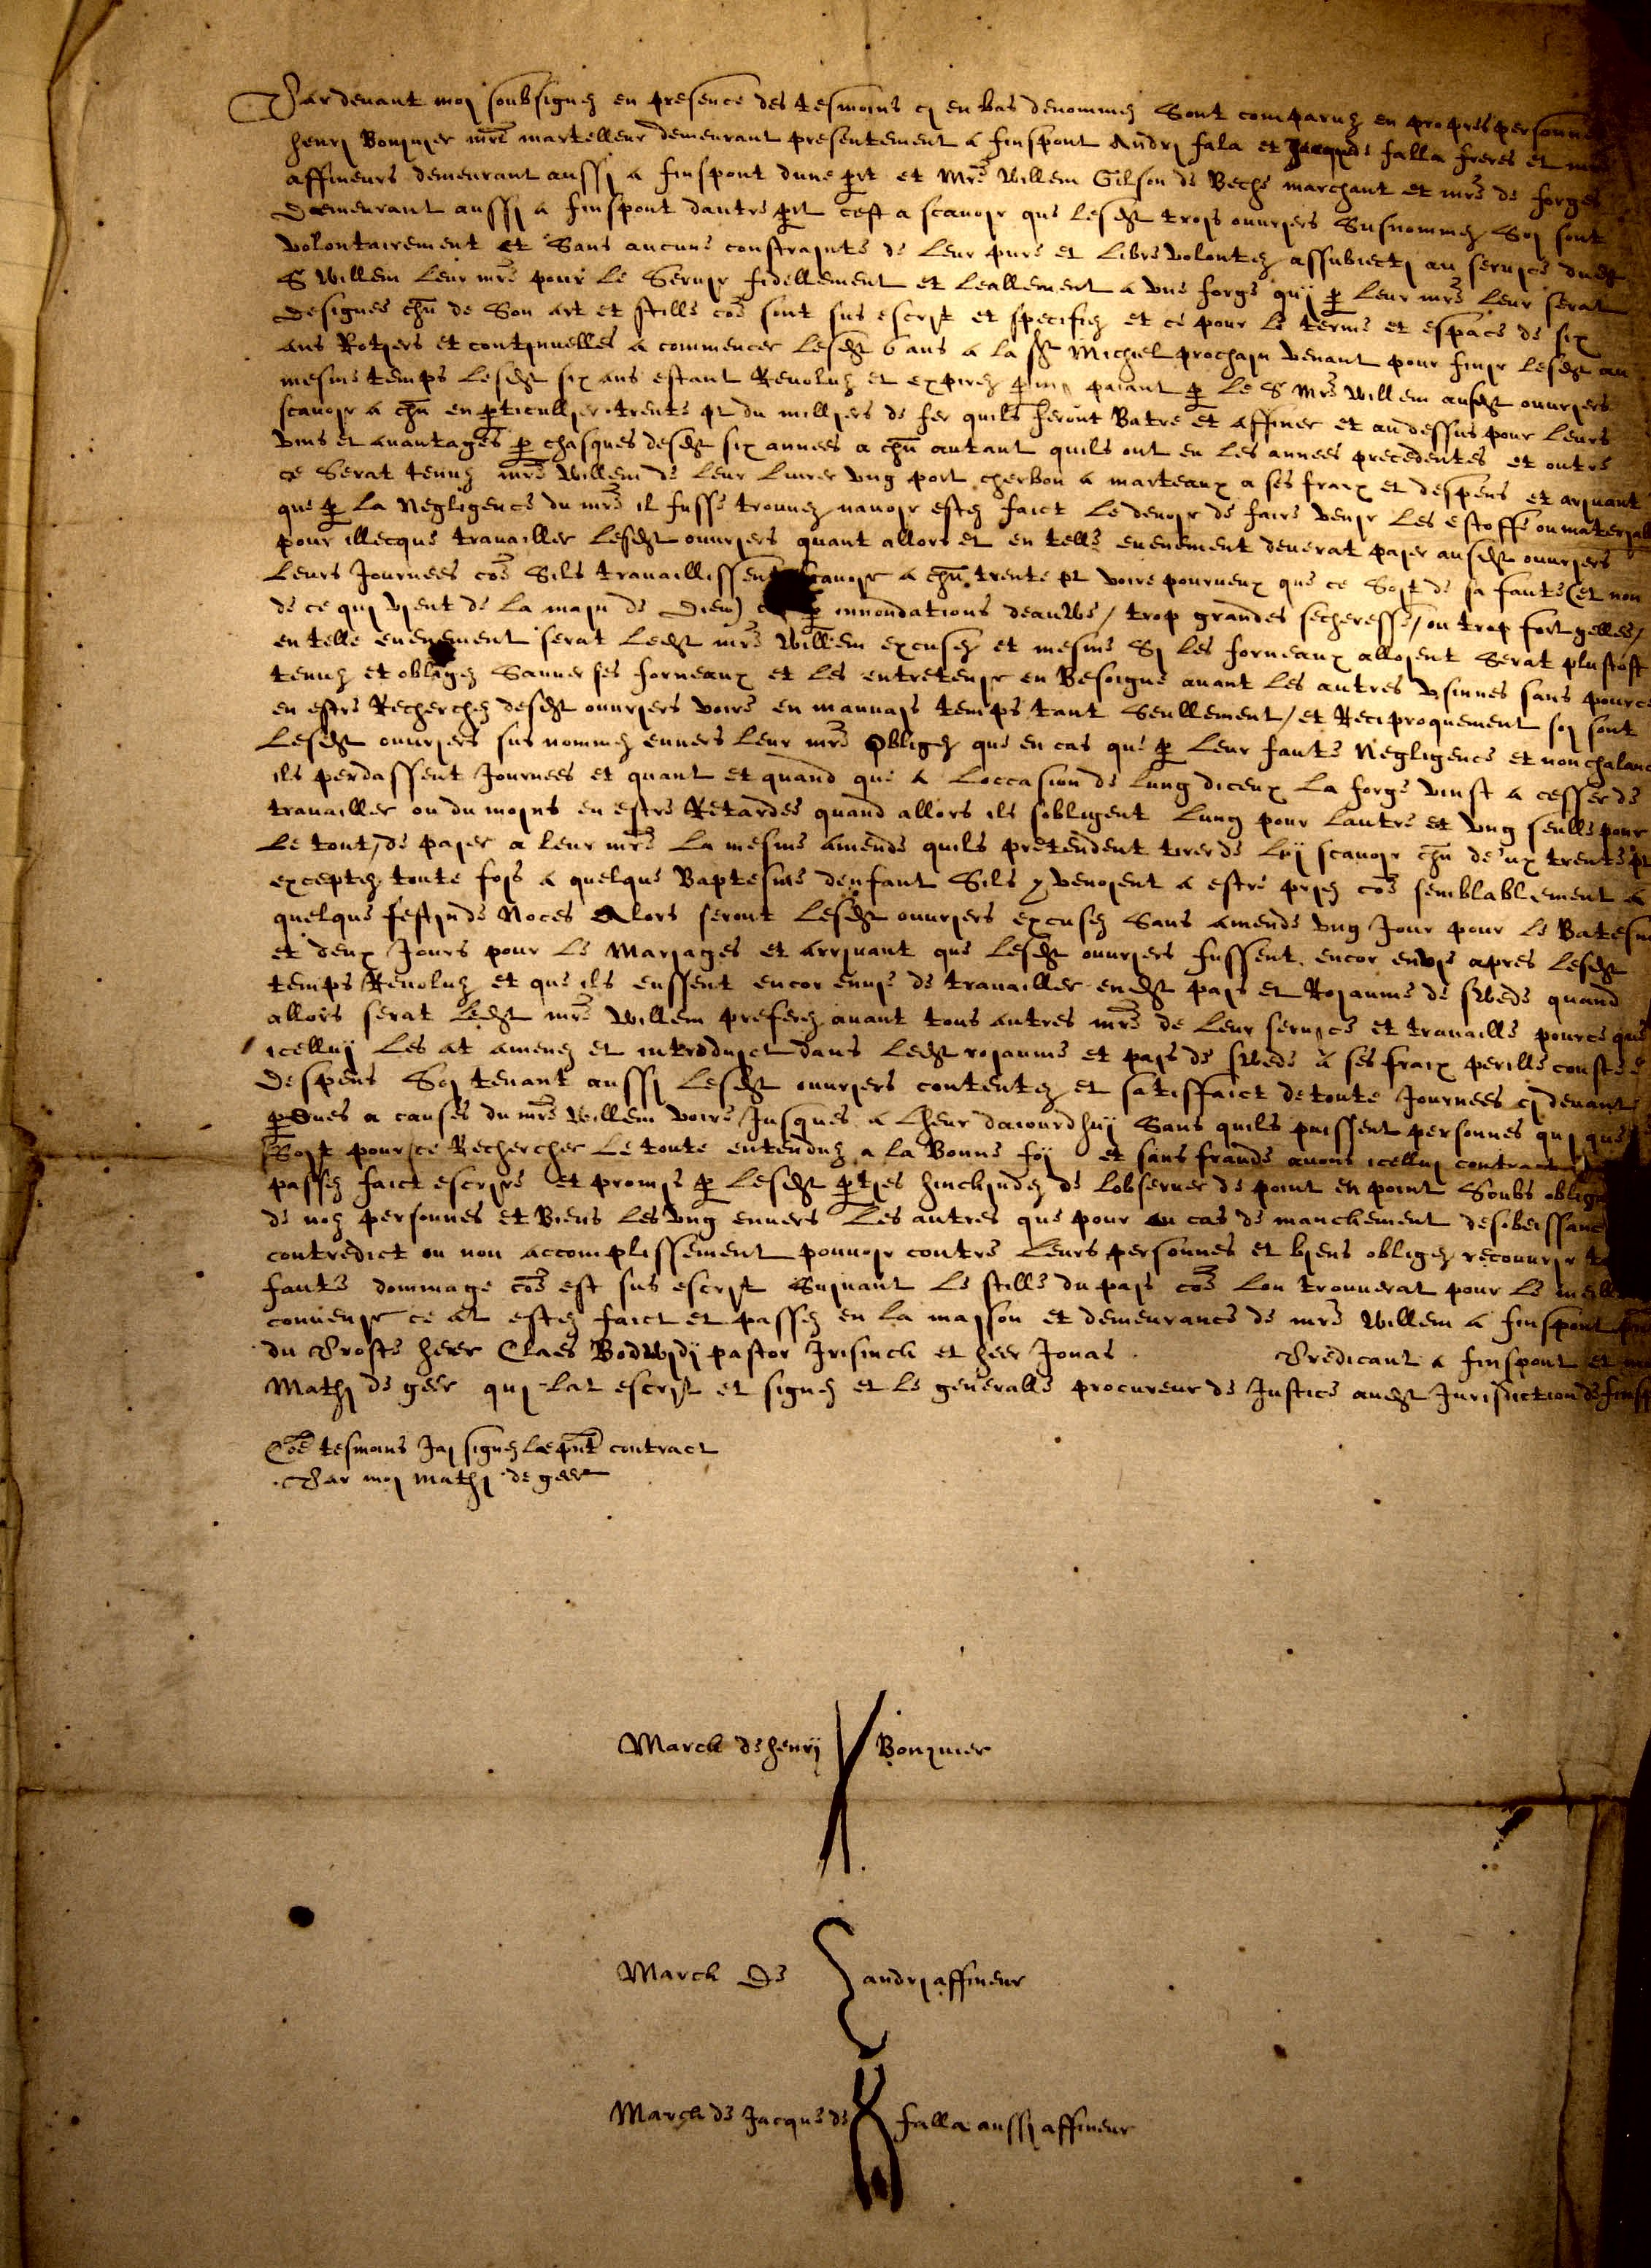 Par deuant moy soubsignez en presence des tesmoins cy en bas denommez Sont comparuz en propres personnes
henry Bonynier mre martelleur demeurant presentement a finspont Andry fala et Jacques falla freres et
affineurs demeurant aussy a finspont dune prt et Mre Willem Gilson de Beche marchant et mre de forges
Demeurant aussy a finspont dautre prt cest a scauoir que lesdt trois ouuriers Susnommez Soy sont
volontairement et Sans aucune constrainte de leur pure et libre volontez assubiecty au seruice dudt
S Willem leur mre pour le Seruir fidellement et leallement a vne forge quy pr leur mre leur serat
designee chun de Son art et stille coe sont sus escrit et specifiez et ce pour le terme et espace de six
ans Rotiers et continuelles a commencer lesdt 6 ans a la St Michiel prochain venant pour finir lesdt au
mesme temps lesdt six ans estant Reuoluz et expirez paiant pr le S Mre Willem ausdt ouuriers
scauoir a chun en prticullier trente pt du milliers de fer quils feront Batre et affiner et au dessus pour leurs
vins et auantages pr chasques desdt six annees a chun autant quils ont eu les annees precedentes et outre
ce Serat tenuz mre Willem de leur liurer vng port cherbon a marteaux a ses fraix et despens et ariuant
que pr la Negligence du mre il fusse trouuez nauoir estez faict le deuoir de faire venir les estoffe ou material
pour illecque trauailler lesdt ouuriers quant allors et en telle euenement deuerat paier ausdt ouuriers
leurs Journees coe Sils trauaillissent scauoir a chun trente pt voire pourueux que ce Soit de sa faute (et non
de ce quy vient de la main de Dieu) pr innondations deauwe / trop grandes secheresse / ou trop fort gelles /
en telle euenement serat ledt mre Willem excusez et mesme Sy les forneaux alloient Serat plustost
tenuz et obligez Sauuer ses forneaux et les entretenir en Besoigne auant les autres vsinnes sans pource
en estre Recherchez desdt ouuriers voire en mauuais temps tant Seullement / et Reciproquement soy sont
lesdt ouuriers sus nommez enuers leur mre obligez que en cas que pr leur faute Negligence et non chalance
ils perdassent Journees et quant et quand que a loccasion de lung diceux la forge vinst a cesser de
trauailler ou du moins en estre Retardee quand allors ils sobligent lung pour lautre et vng seulle pour
le tout, de paier a leur mre la mesme amende quils pretendent tirer de luy scauoir chun deux trente pt
exceptez toute fois a quelque Baptesme denfant Sils y venoient a estre priez coe semblablement a
quelque festin de Noces Alors seront lesdt ouuriers excusez Sans amende vng Jour pour le Batesme
et deux Jours pour le Mariages et arriuant que lesdt ouuriers fussent encor envie apres lesdt
temps Reuoluz et que ils eussent encor enuie de trauailler endt pais et Roiaume de swede quand
allors serat ledt mre Willem preferez auant tous autres mre de leur seruice et trauaille pource que
icelluy les at amenez et introduict dans ledt roiaume et pais de swede a ses fraix perille couste
Despens Soy tenant aussy lesdt ouuriers contentez et satisfaict de toute Journees cy deuant
prdues a causes du mre Willem voire Jusques a lheur daiourdhuy Sans quils puissent personnes quy que
Soit pour ce Rechercher le toute entenduz a la Bonne foy et sans fraude auons icelluy contract
passez faict escrire et promis pr lesdt prties hinckindez de lobseruer de point en point Soubs oblig
de noz personnes et Biens les vng enuers les autres que pour en cas de manckement desobeissance
contredict ou non accomplissement pouuoir contre leurs personnes et biens obligez recouurir
faute dommage coe est sus escrit Suiuant le stille du pais coe lon trouuerat pour le meilleur
conuenir ce at estez faict et passez en la maison et demeurance de mre Willem a finspont
du Proste heer Claes Bodwidy pastor Jrisinck et heer Jonas Predicant a finspont et
Mathy de geer quy lat escrit et signez et le generalle procureur de Justice audt Jurisdiction de finsp
Coe tesmoins Jay signez le pnt contract
Par moy mathy de geer
Marck de henry Bonynier
Marck de andry affineur
Marck de Jacque de falla aussy affineur